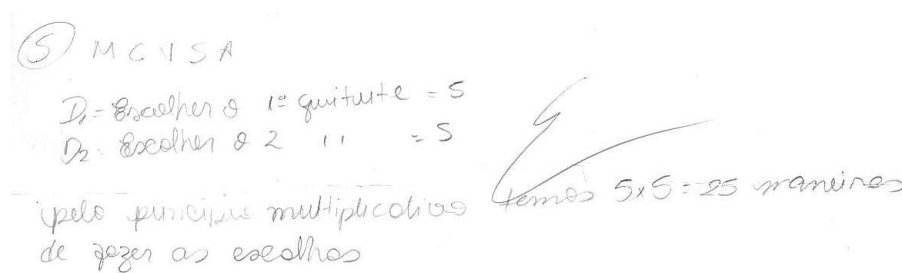 5 M C V S A
D1 = Escolher o 1º quitute = 5
D2 = Escolher o 2 " = 5
pelo princípio multiplicativo temos 5x5 = 25 maneiras
de fazer as escolhas